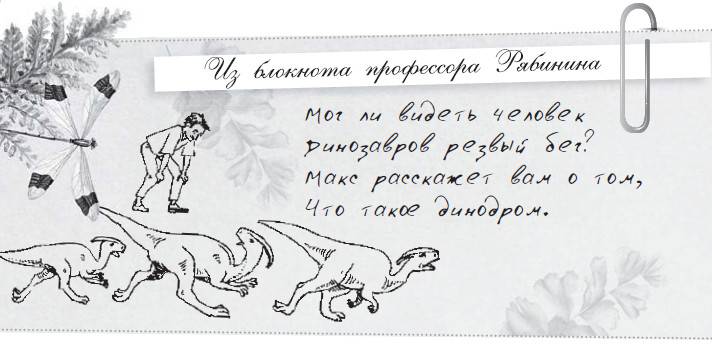 Из блокнота профессора Рябинина
Мог ли видеть человек
Динозавров резвый бег?
Макс расскажет вам о том,
Что такое динодром.